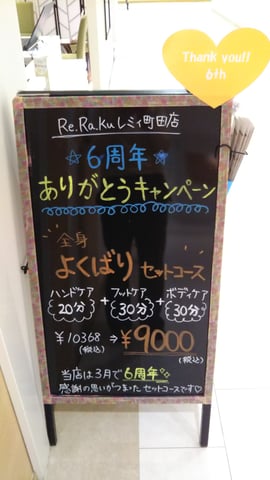 Thank you!!
6th
Re.Ra.Ku レミィ町田店
☆6周年☆
ありがとうキャンペーン
全身
よくばりセットコース
ハンドケア 20分 + フットケア 30分 + ボディケア 30分
¥10368(税込) ⇒ ¥9000(税込)
当店は3月で6周年
感謝の思いがつまったセットコースです♡